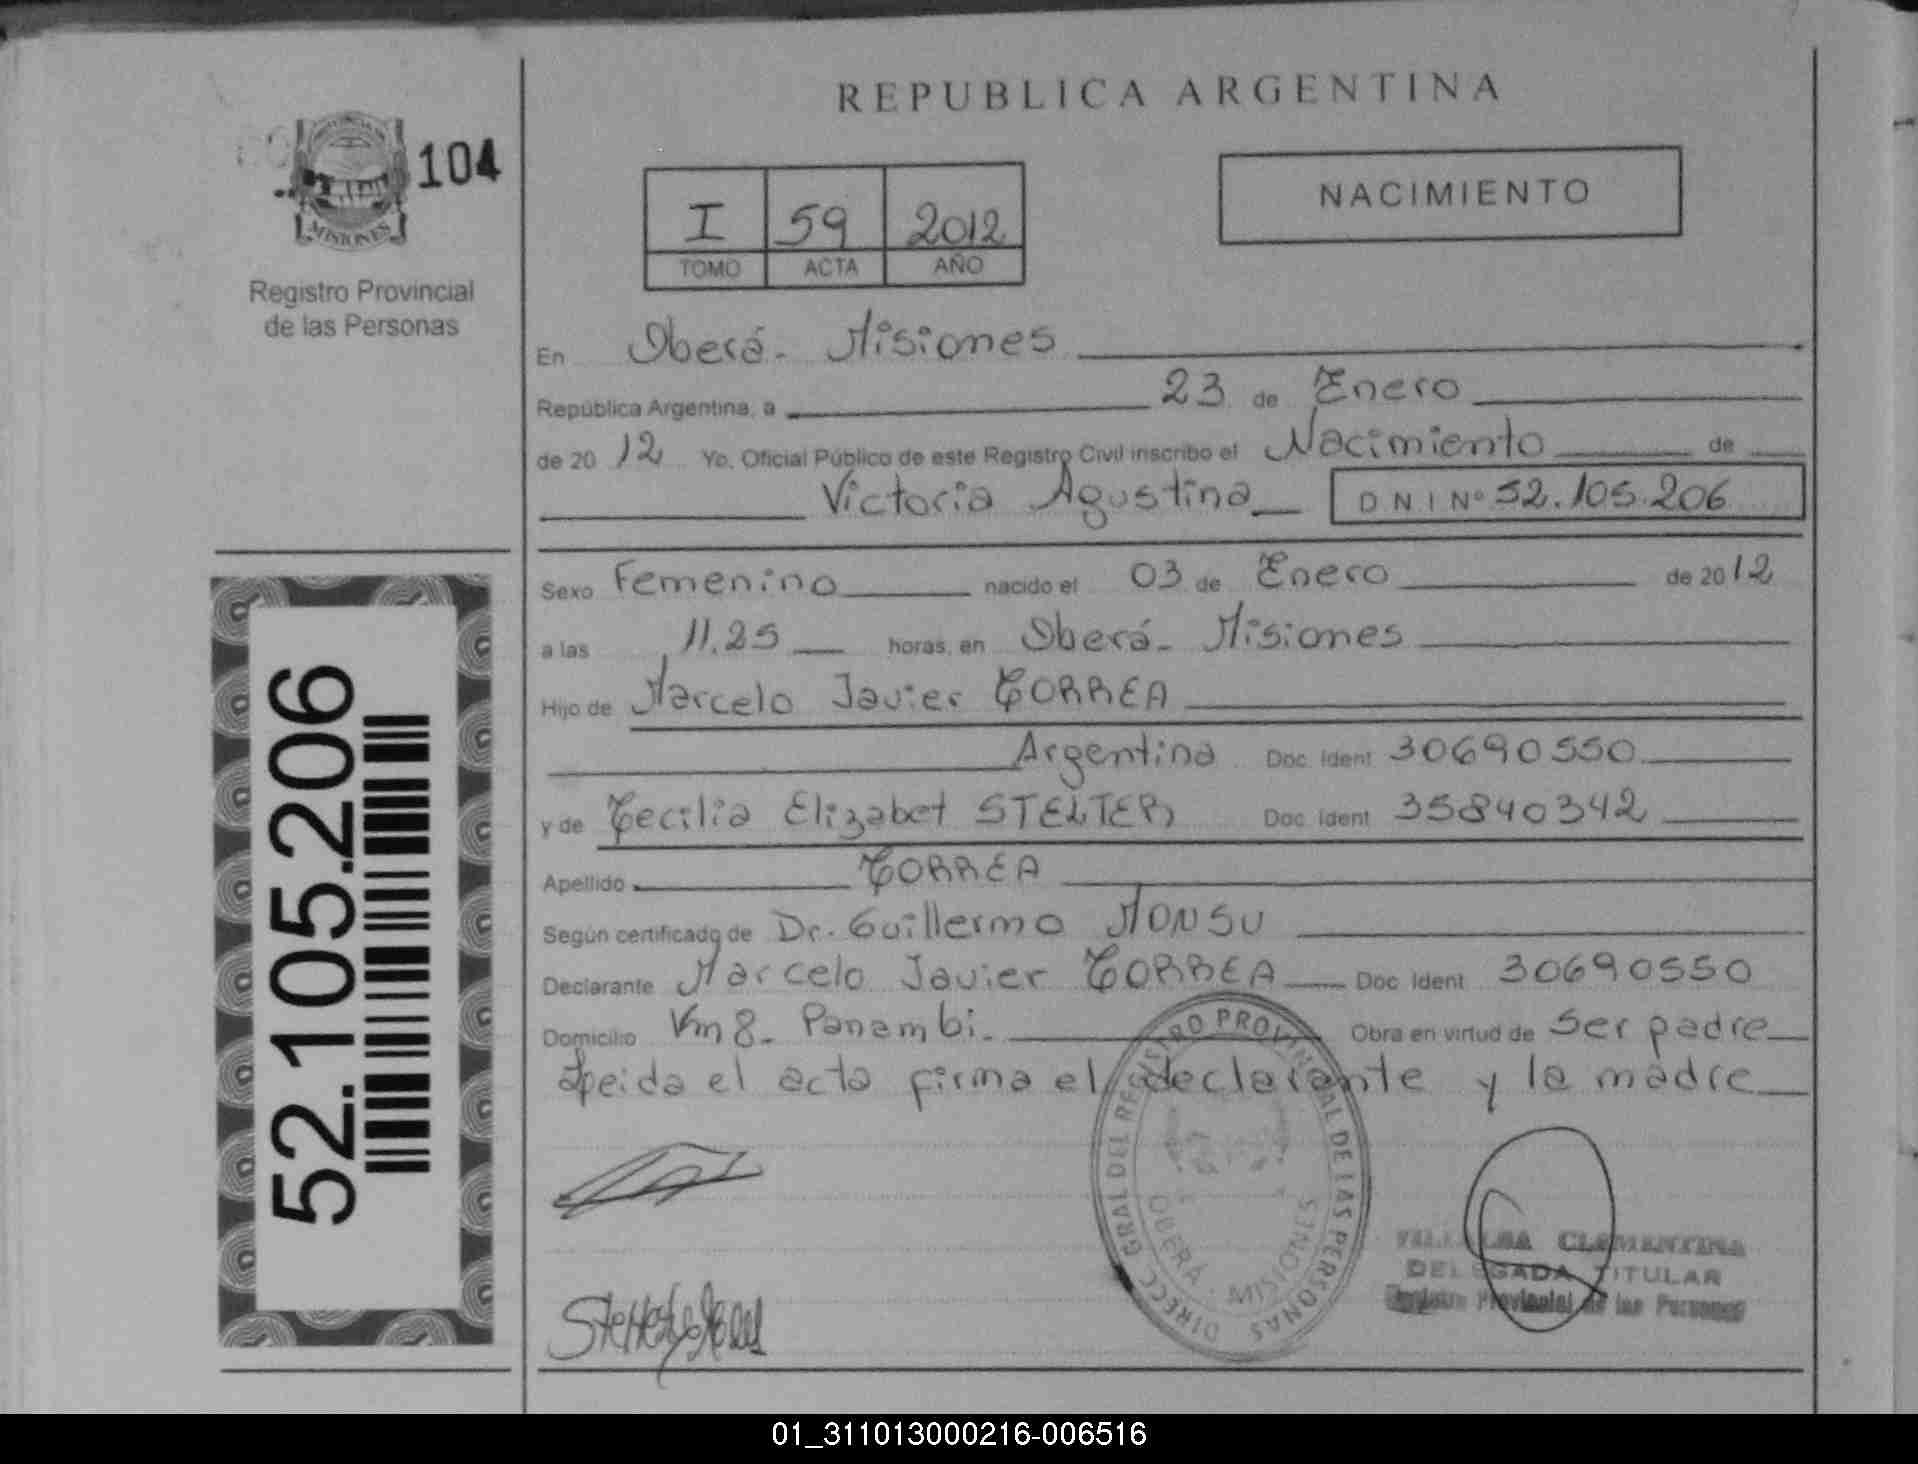 REPUBLICA ARGENTINA
104
MISIONES
Registro Provincial
de las Personas
I 59 2012
TOMO ACTA AÑO
NACIMIENTO
En Oberá - Misiones
República Argentina, a 23 de Enero
de 2012 Yo, Oficial Público de este Registro Civil inscribo el Nacimiento de
Victoria Agustina DNI Nº 52.105.206
Sexo Femenino nacido el 03 de Enero de 2012
a las 11.25 horas, en Oberá - Misiones
Hijo de Marcelo Javier CORREA
Argentina Doc. Ident 30690550
y de Cecilia Elizabet STELTER Doc. Ident 35840342
Apellido CORREA
Según certificado de Dr. Guillermo MONSU
Declarante Marcelo Javier CORREA Doc Ident 30690550
Domicilio Km 8 - Panambi - Obra en virtud de Ser padre
Leida el acta firma el declarante y la madre
52.105.206
DIREC. GRAL DEL REGISTRO PROVINCIAL DE LAS PERSONAS
OBERÁ - MISIONES
VILLALBA CLEMENTINA
DELEGADA TITULAR
Registro Provincial de las Personas
01_311013000216-006516